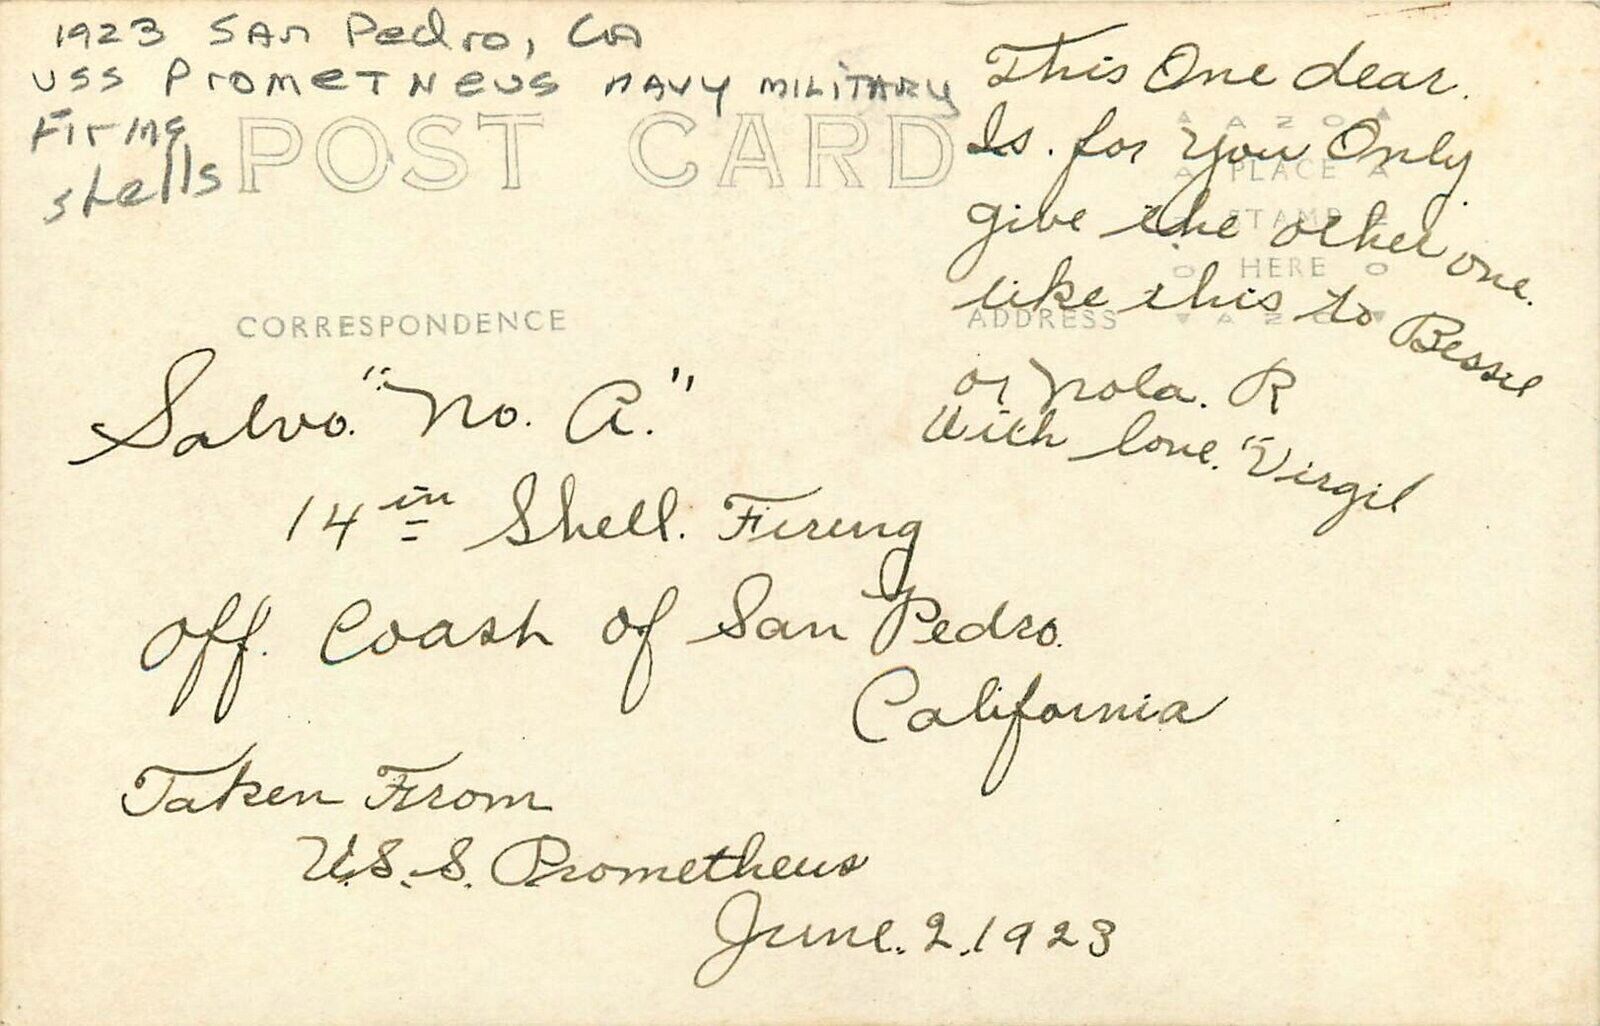 1923 San Pedro, CA
USS Prometheus Navy Military
Firing
shells
POST CARD
This One dear.
Is. for You Only
give the other one.
like this to Bessie
or Nola. R
With love. "Virgil
▲ AZO ▲
PLACE
STAMP
HERE
▼ AZO ▼
CORRESPONDENCE
ADDRESS
Salvo. "No. A."
14 in Shell. Firing
Off. Coast of San Pedro.
California
Taken From
U.S.S. Prometheus
June. 2. 1923